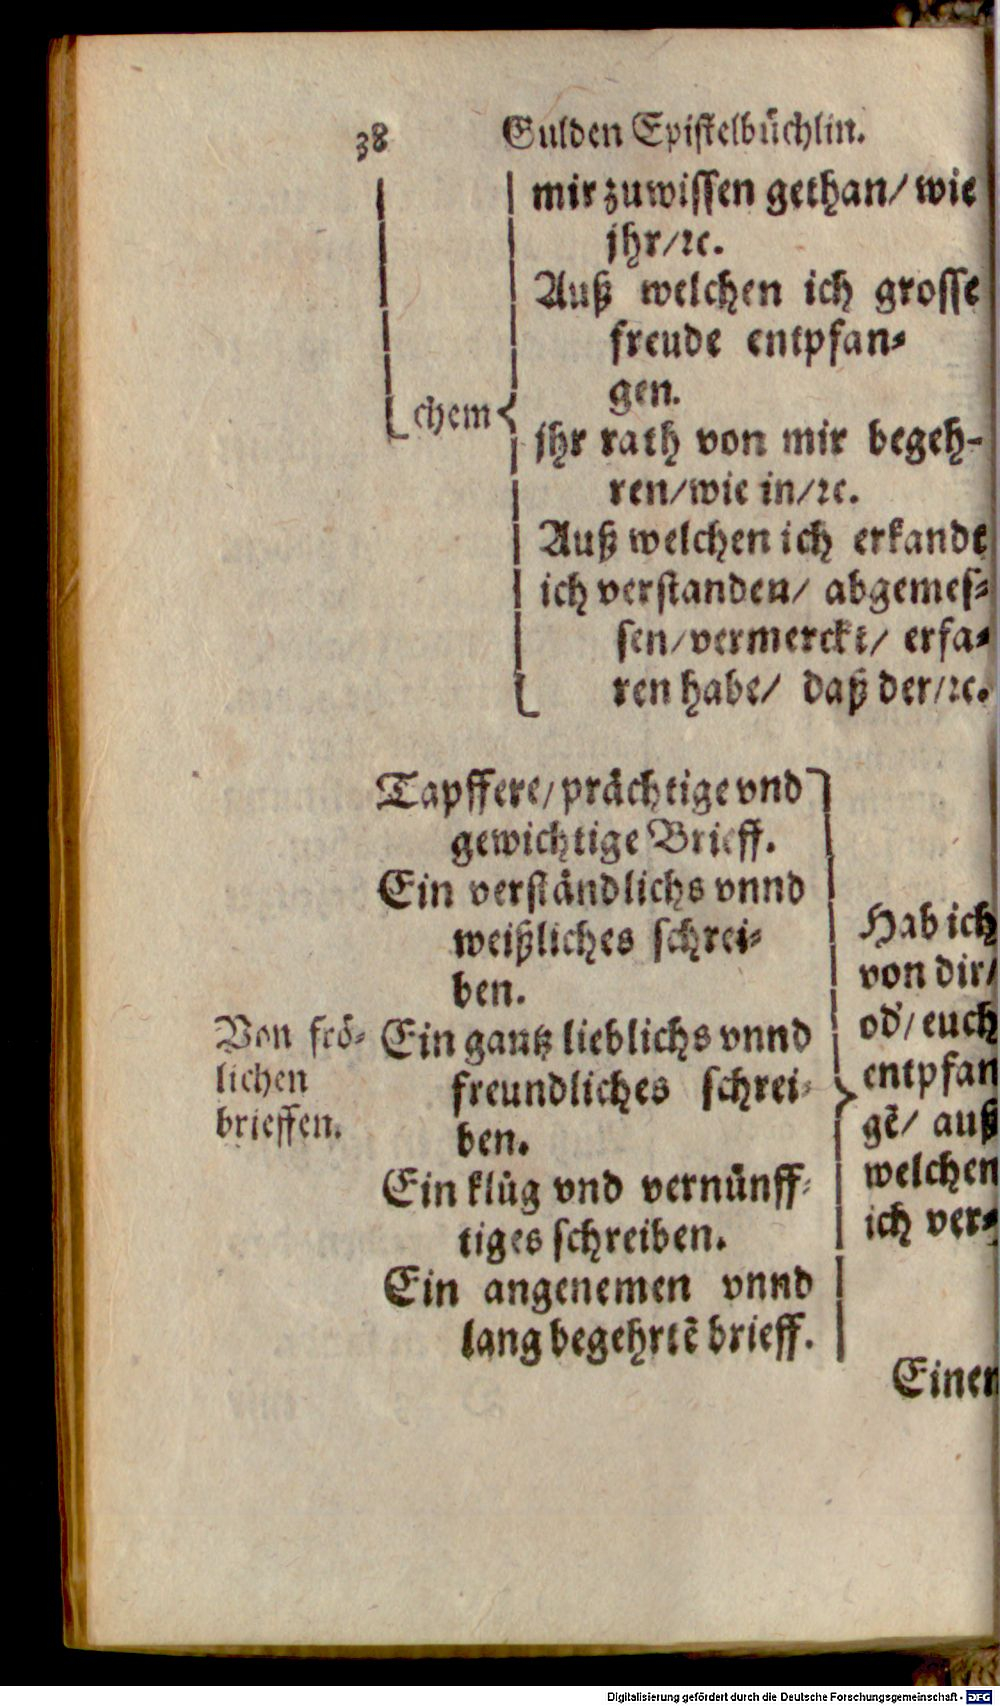 38
Gulden Epistelbüchlin.
mir zuwissen gethan/ wie
jhr/ꝛc.
Auß welchen ich grosse
freude entpfan⸗
gen.
chem
jhr rath von mir begeh-
ren/wie in/ꝛc.
Auß welchen ich erkandt
ich verstanden/ abgemes⸗
sen/vermerckt/ erfa⸗
ren habe/ daß der/ꝛc.
Tapffere/prächtige vnd
gewichtige Brieff.
Ein verständlichs vnnd
weißliches schrei⸗
ben.
Ein gantz lieblichs vnnd
freundliches schrei⸗
ben.
Ein klüg vnd vernünff⸗
tiges schreiben.
Ein angenemen vnnd
lang begehrtẽ brieff.
Von frö⸗
lichen
brieffen.
Hab ich
von dir/
od'/ euch
entpfan
gẽ/ auß
welchen
ich ver⸗
Einen
Digitalisierung gefördert durch die Deutsche Forschungsgemeinschaft - DFG